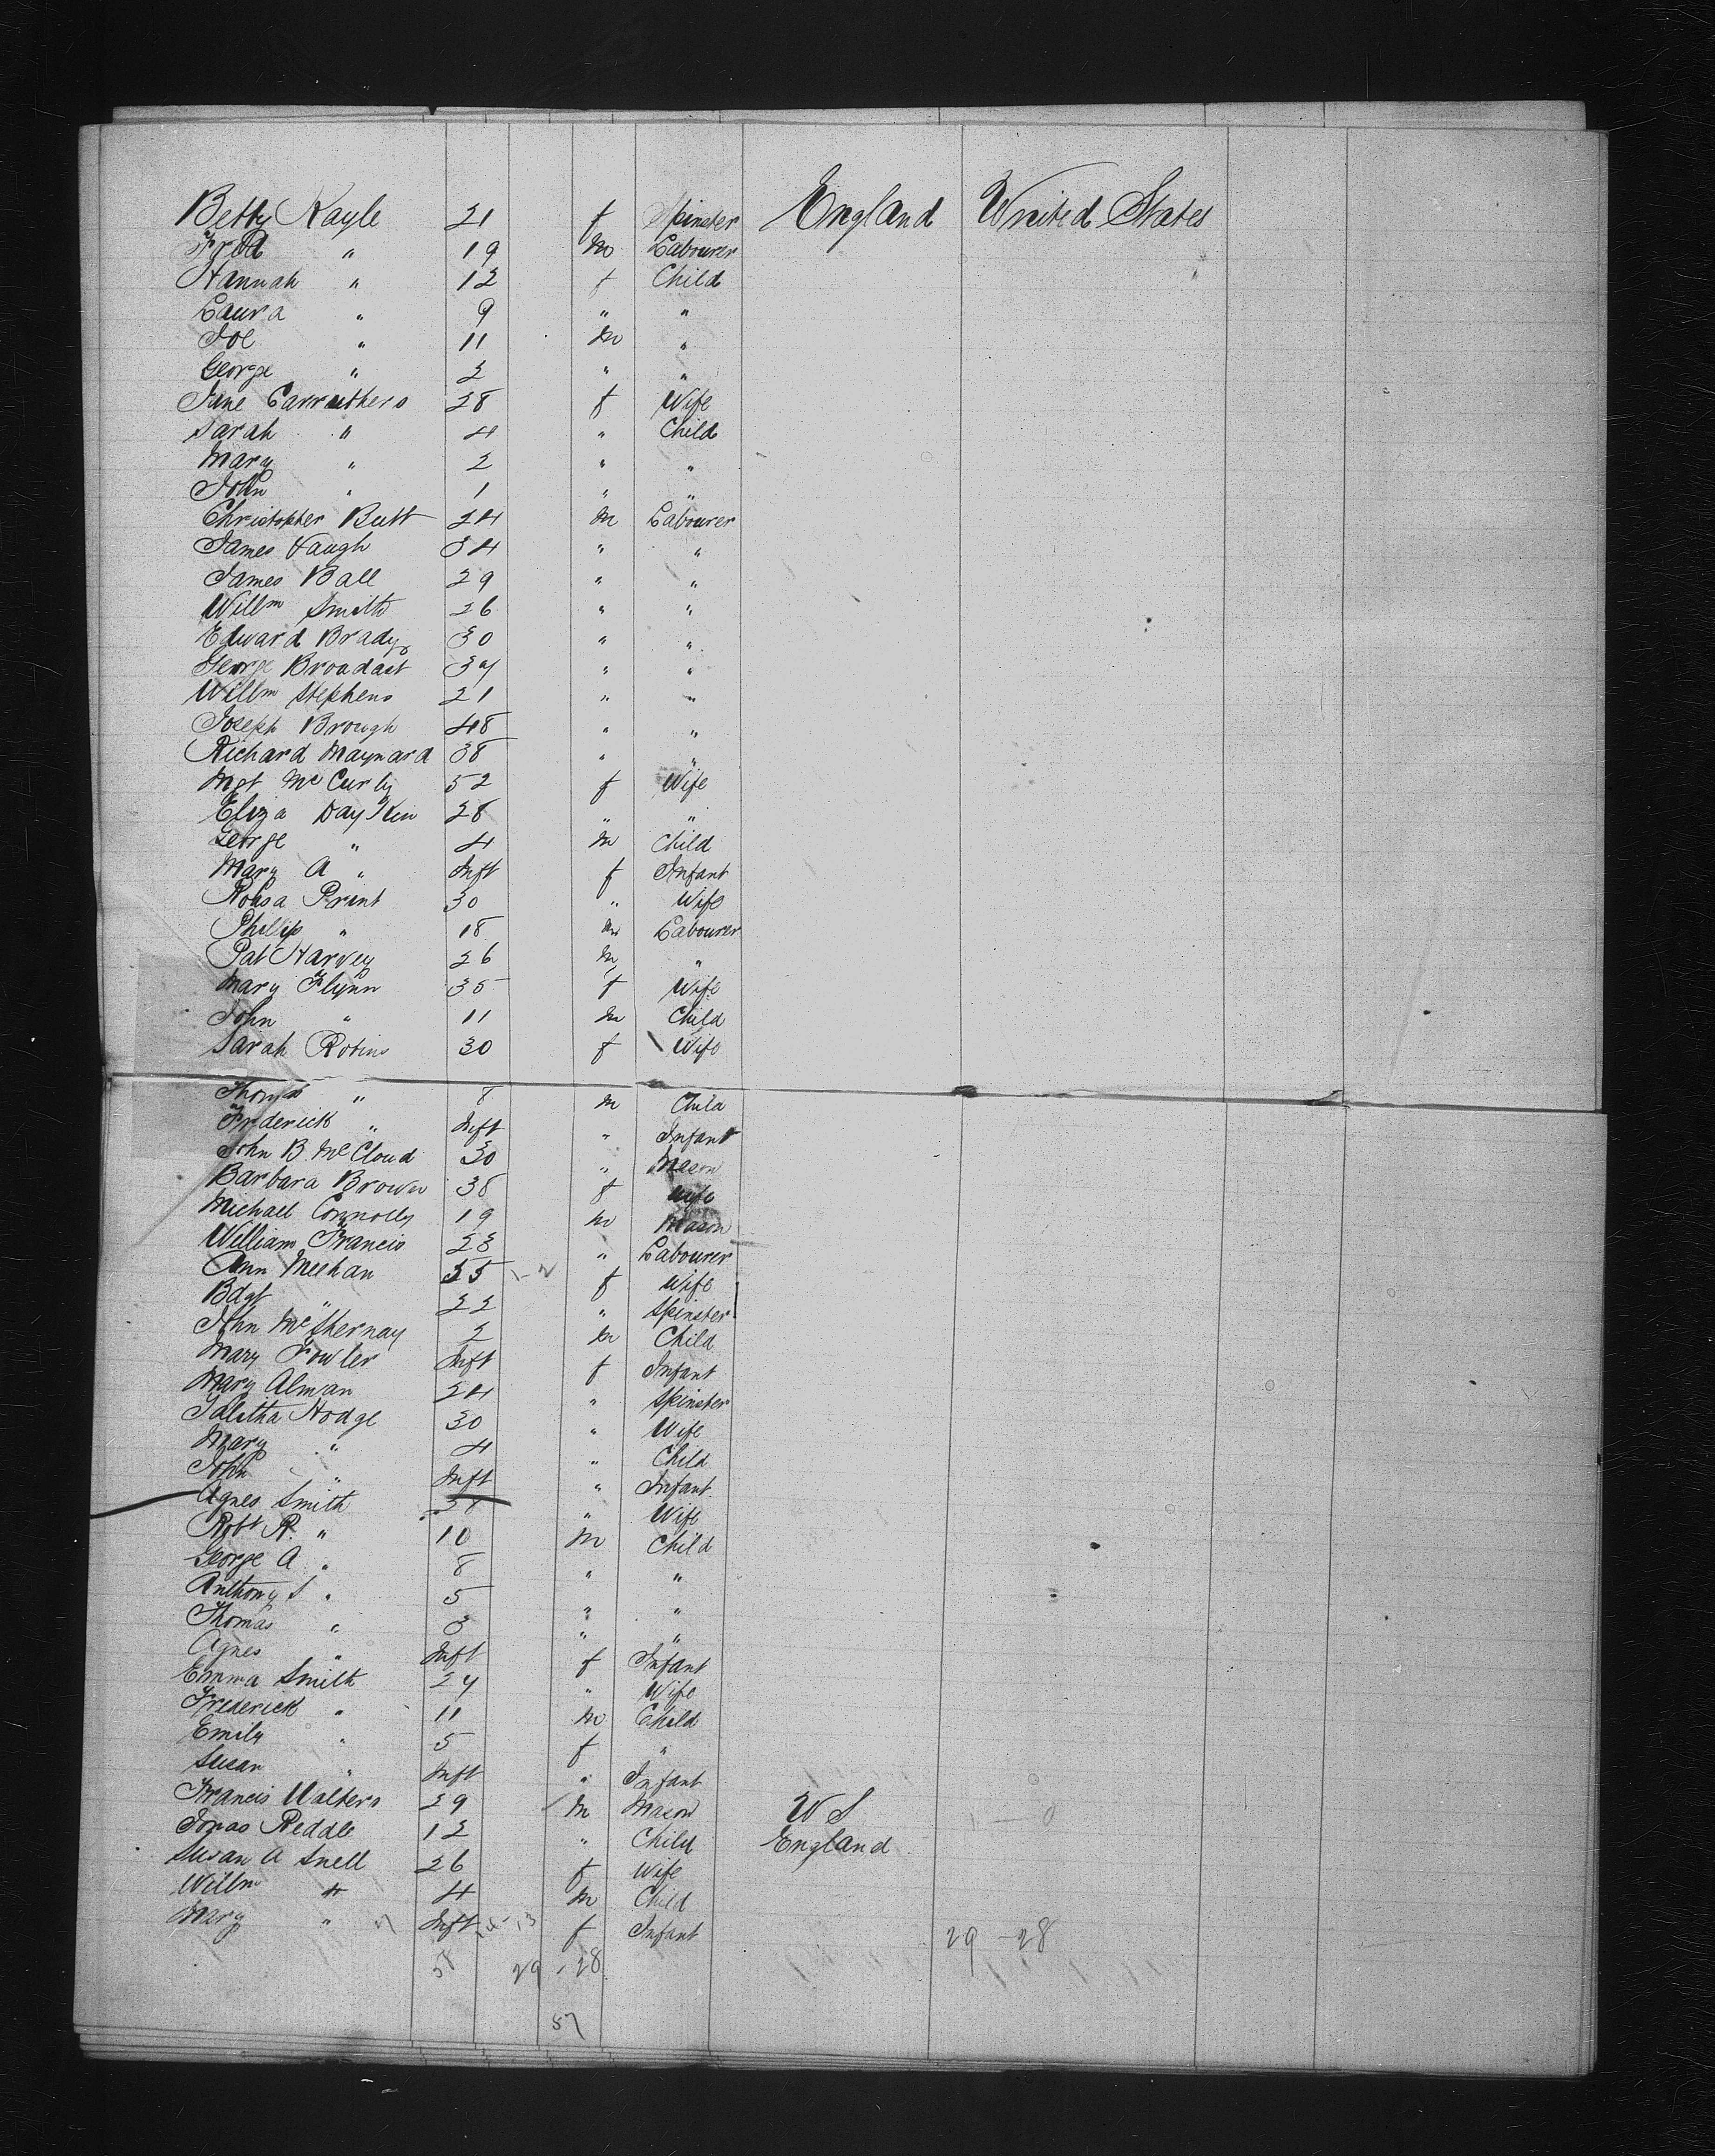 Betty Kayle 21 f Spinster England United States
Fred " 19 m Labourer
Hannah " 12 f Child
Laura " 9 " "
Joe " 11 m "
George " 2 " "
Jane Carruthers 28 f Wife
Sarah " 4 " Child
Mary " 2 " "
John " 1 " "
Christopher Butt 24 m Labourer
James Vaugh 34 " "
James Ball 29 " "
Willm Smith 26 " "
Edward Brady 30 " "
George Broadast "  "
Willm Stephens 21 " "
Joseph Brough 48 " "
Richard Maynard 38 " "
Mgt Mc Curly 52 f Wife
Eliza Day Kin 28 " "
George " 4 m Child
Mary A " Inft f Infant
Print 30 " Wife
Philip " 18 m Labourer
Pat Harvey 26 m "
Mary Flynn 35 f Wife
John " 11 m Child
Sarah Robins 30 f Wife
Thomas " 8 m Child
Frederick " Inft " Infant
John B. McCloud 30 " Mason
Barbara Brown 38 f Wife
Michael Connolly 19 m Mason
William Francis 28 " Labourer
Ann Meehan 55 f Wife
Bdgt " 22 " Spinster
John McShernay 2 m Child
Mary Fowler Inft f Infant
Mary Alman 24 " Spinster
Talitha Hodge 30 " Wife
Mary " 4 " Child
John " Inft " Infant
Agnes Smith 38 " Wife
Robt R. " 10 m Child
George A " 8 " "
Anthony S " 5 " "
Thomas " 3 " "
Agnes " Inft f Infant
Emma Smith 27 " Wife
Frederick " 11 m Child
Emily " 5 f "
Susan " Inft " Infant
Francis Walters 29 m Mason W S 1 - 0
Jonas Reddle 12 " Child England
Susan A Snell 26 f Wife
Willm " 4 m Child
Mary " Inft f Infant 29 - 28
58 29 - 28
57